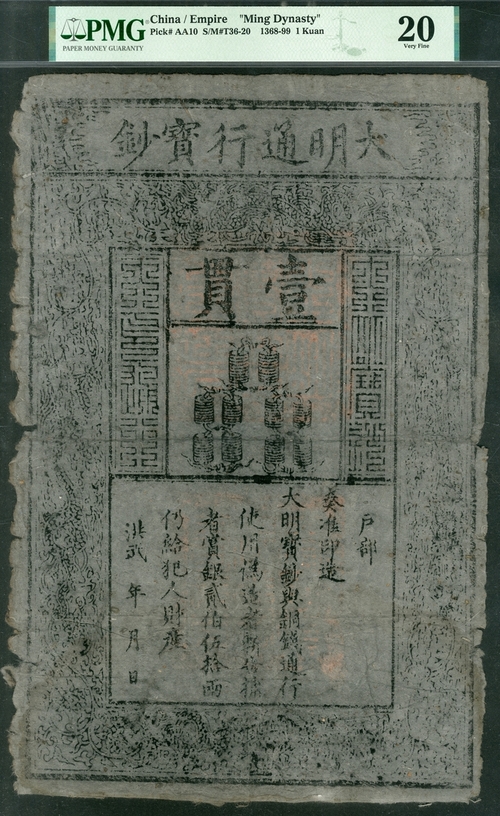 PMG
PAPER MONEY GUARANTY
China / Empire "Ming Dynasty"
Pick# AA10 S/M#T36-20 1368-99 1 Kuan
20
Very Fine
大明通行寶鈔
壹貫
戶部
奏准印造
大明寶鈔與銅錢通行
使用偽造者斬
者賞銀貳伯伍拾兩
仍給犯人財產
洪武 年 月 日